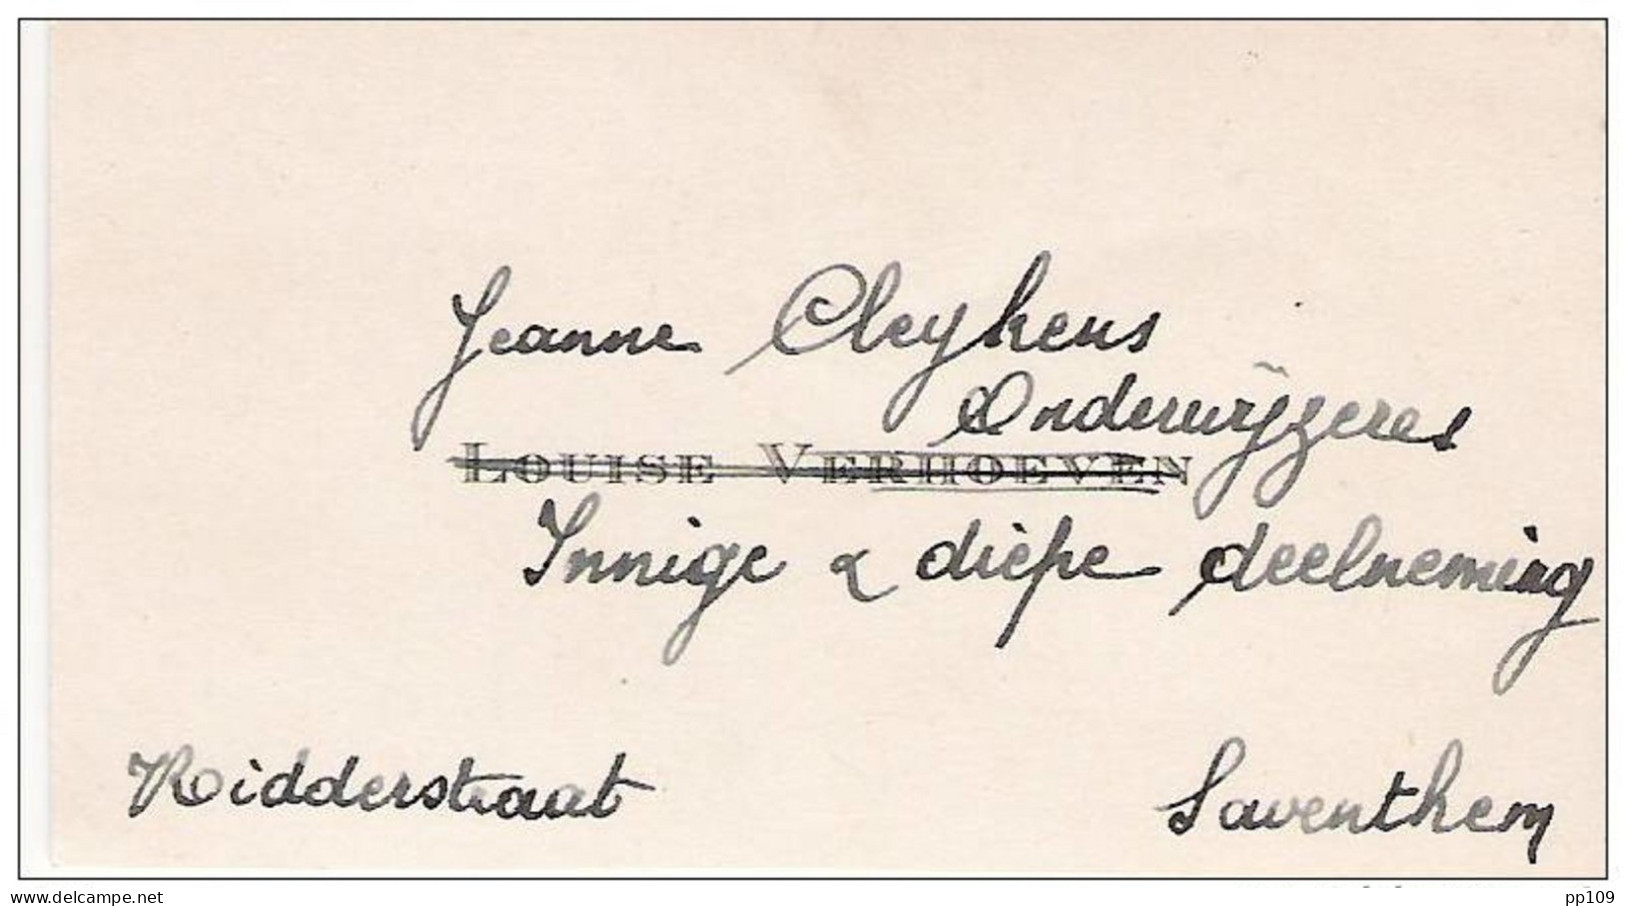 Jeanne Cleykens
Onderwijzeres
LOUISE VERHOEVEN
Innige & diepe deelneming
Ridderstraat Saventhem
www.delcampe.net pp109